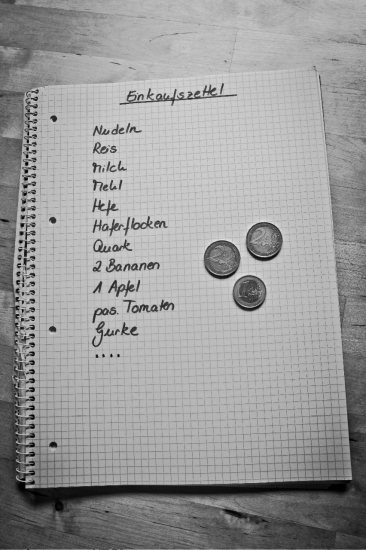 Einkaufszettel
Nudeln
Reis
Milch
Mehl
Hefe
Haferflocken
Quark
2 Bananen
1 Apfel
pas. Tomaten
Gurke
....